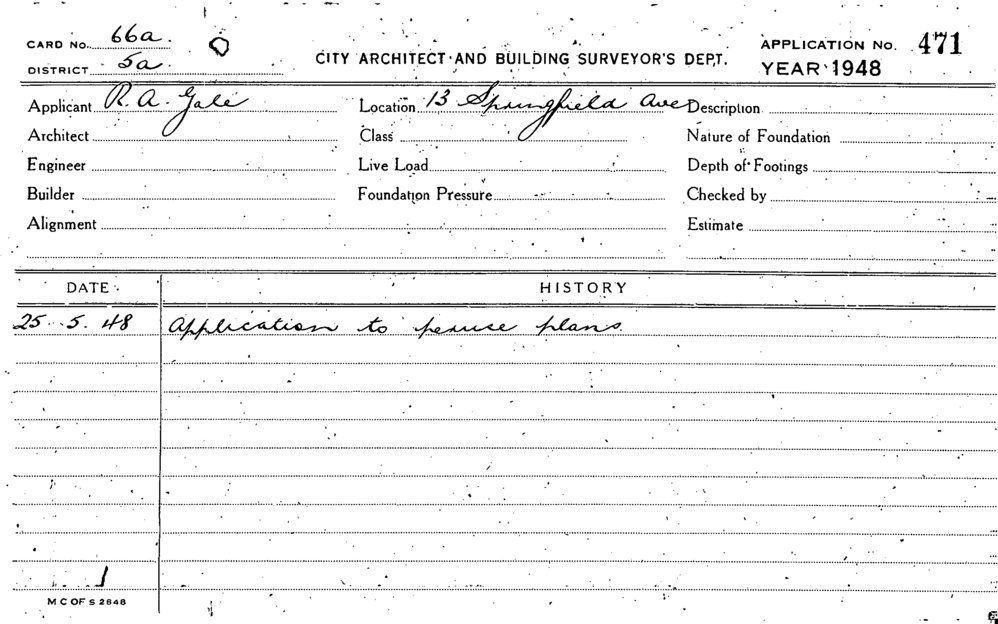 CARD No. 66a.
DISTRICT 5a.
CITY ARCHITECT AND BUILDING SURVEYOR'S DEPT.
APPLICATION No. 471
YEAR 1948
Applicant R. A. Gale Location 13 Springfield Ave Description
Architect Class Nature of Foundation
Engineer Live Load Depth of Footings
Builder Foundation Pressure Checked by
Alignment Estimate
DATE HISTORY
25. 5. 48 Application to peruse plans.
M C OF S 2848